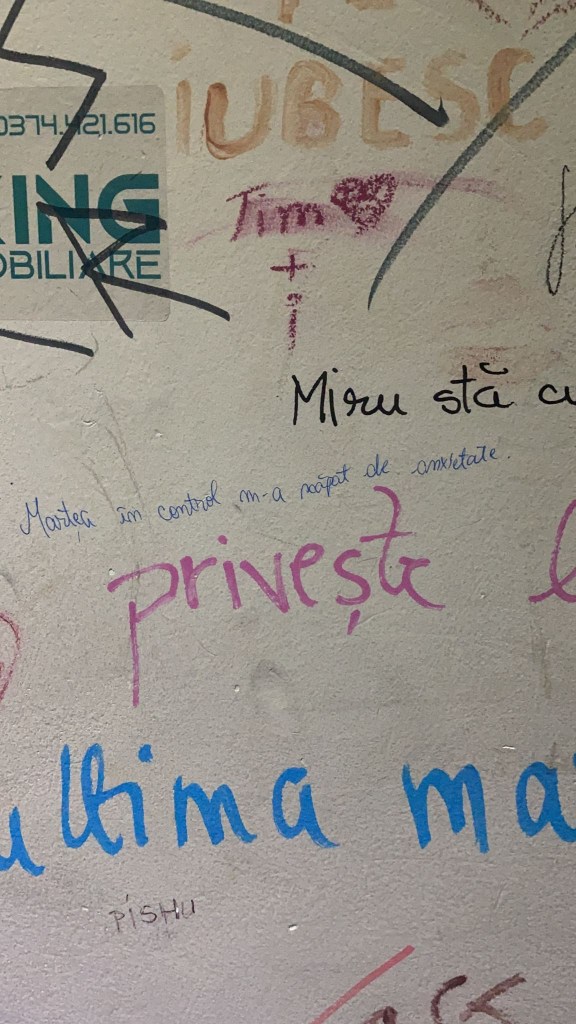 IUBESC
0374.421.616
KING
OBILIARE
Tim
+
i
Miru stă
Martea în control m-a scăpat de anxietate.
privește
ultima ma
PISHU